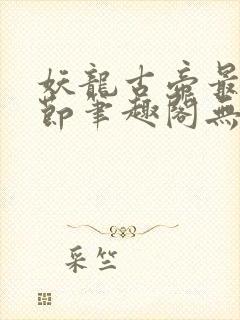 妖龍古帝最
節筆趣閣無
采竺